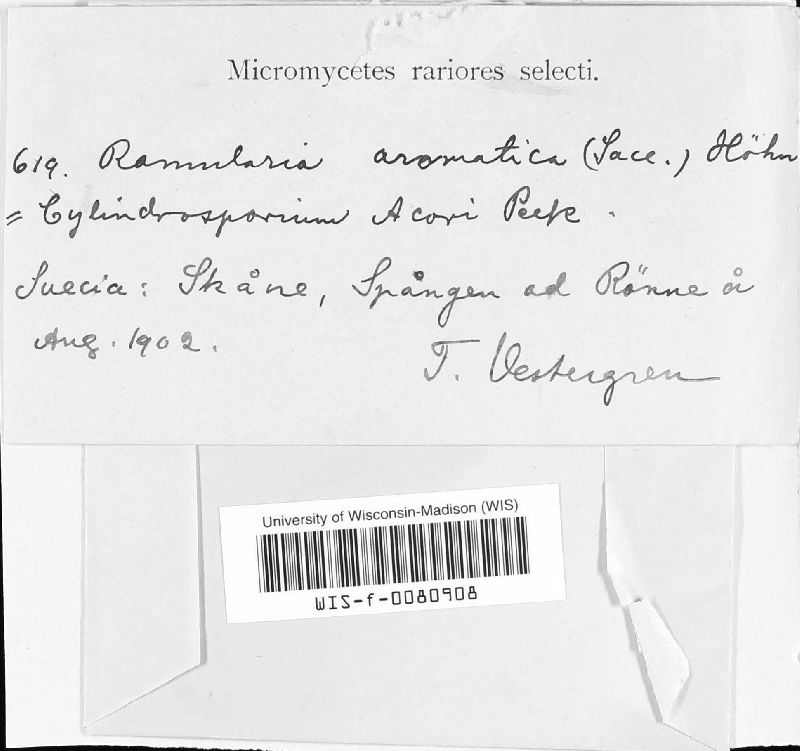 Micromycetes rariores selecti.
619. Ramularia aromatica (Sacc.) Höhn
= Cylindrosporium Acori Peck.
Suecia: Skåne, Spången ad Rönne å
Aug. 1902.
T. Vestergren
University of Wisconsin-Madison (WIS)
WIS-f-0080908